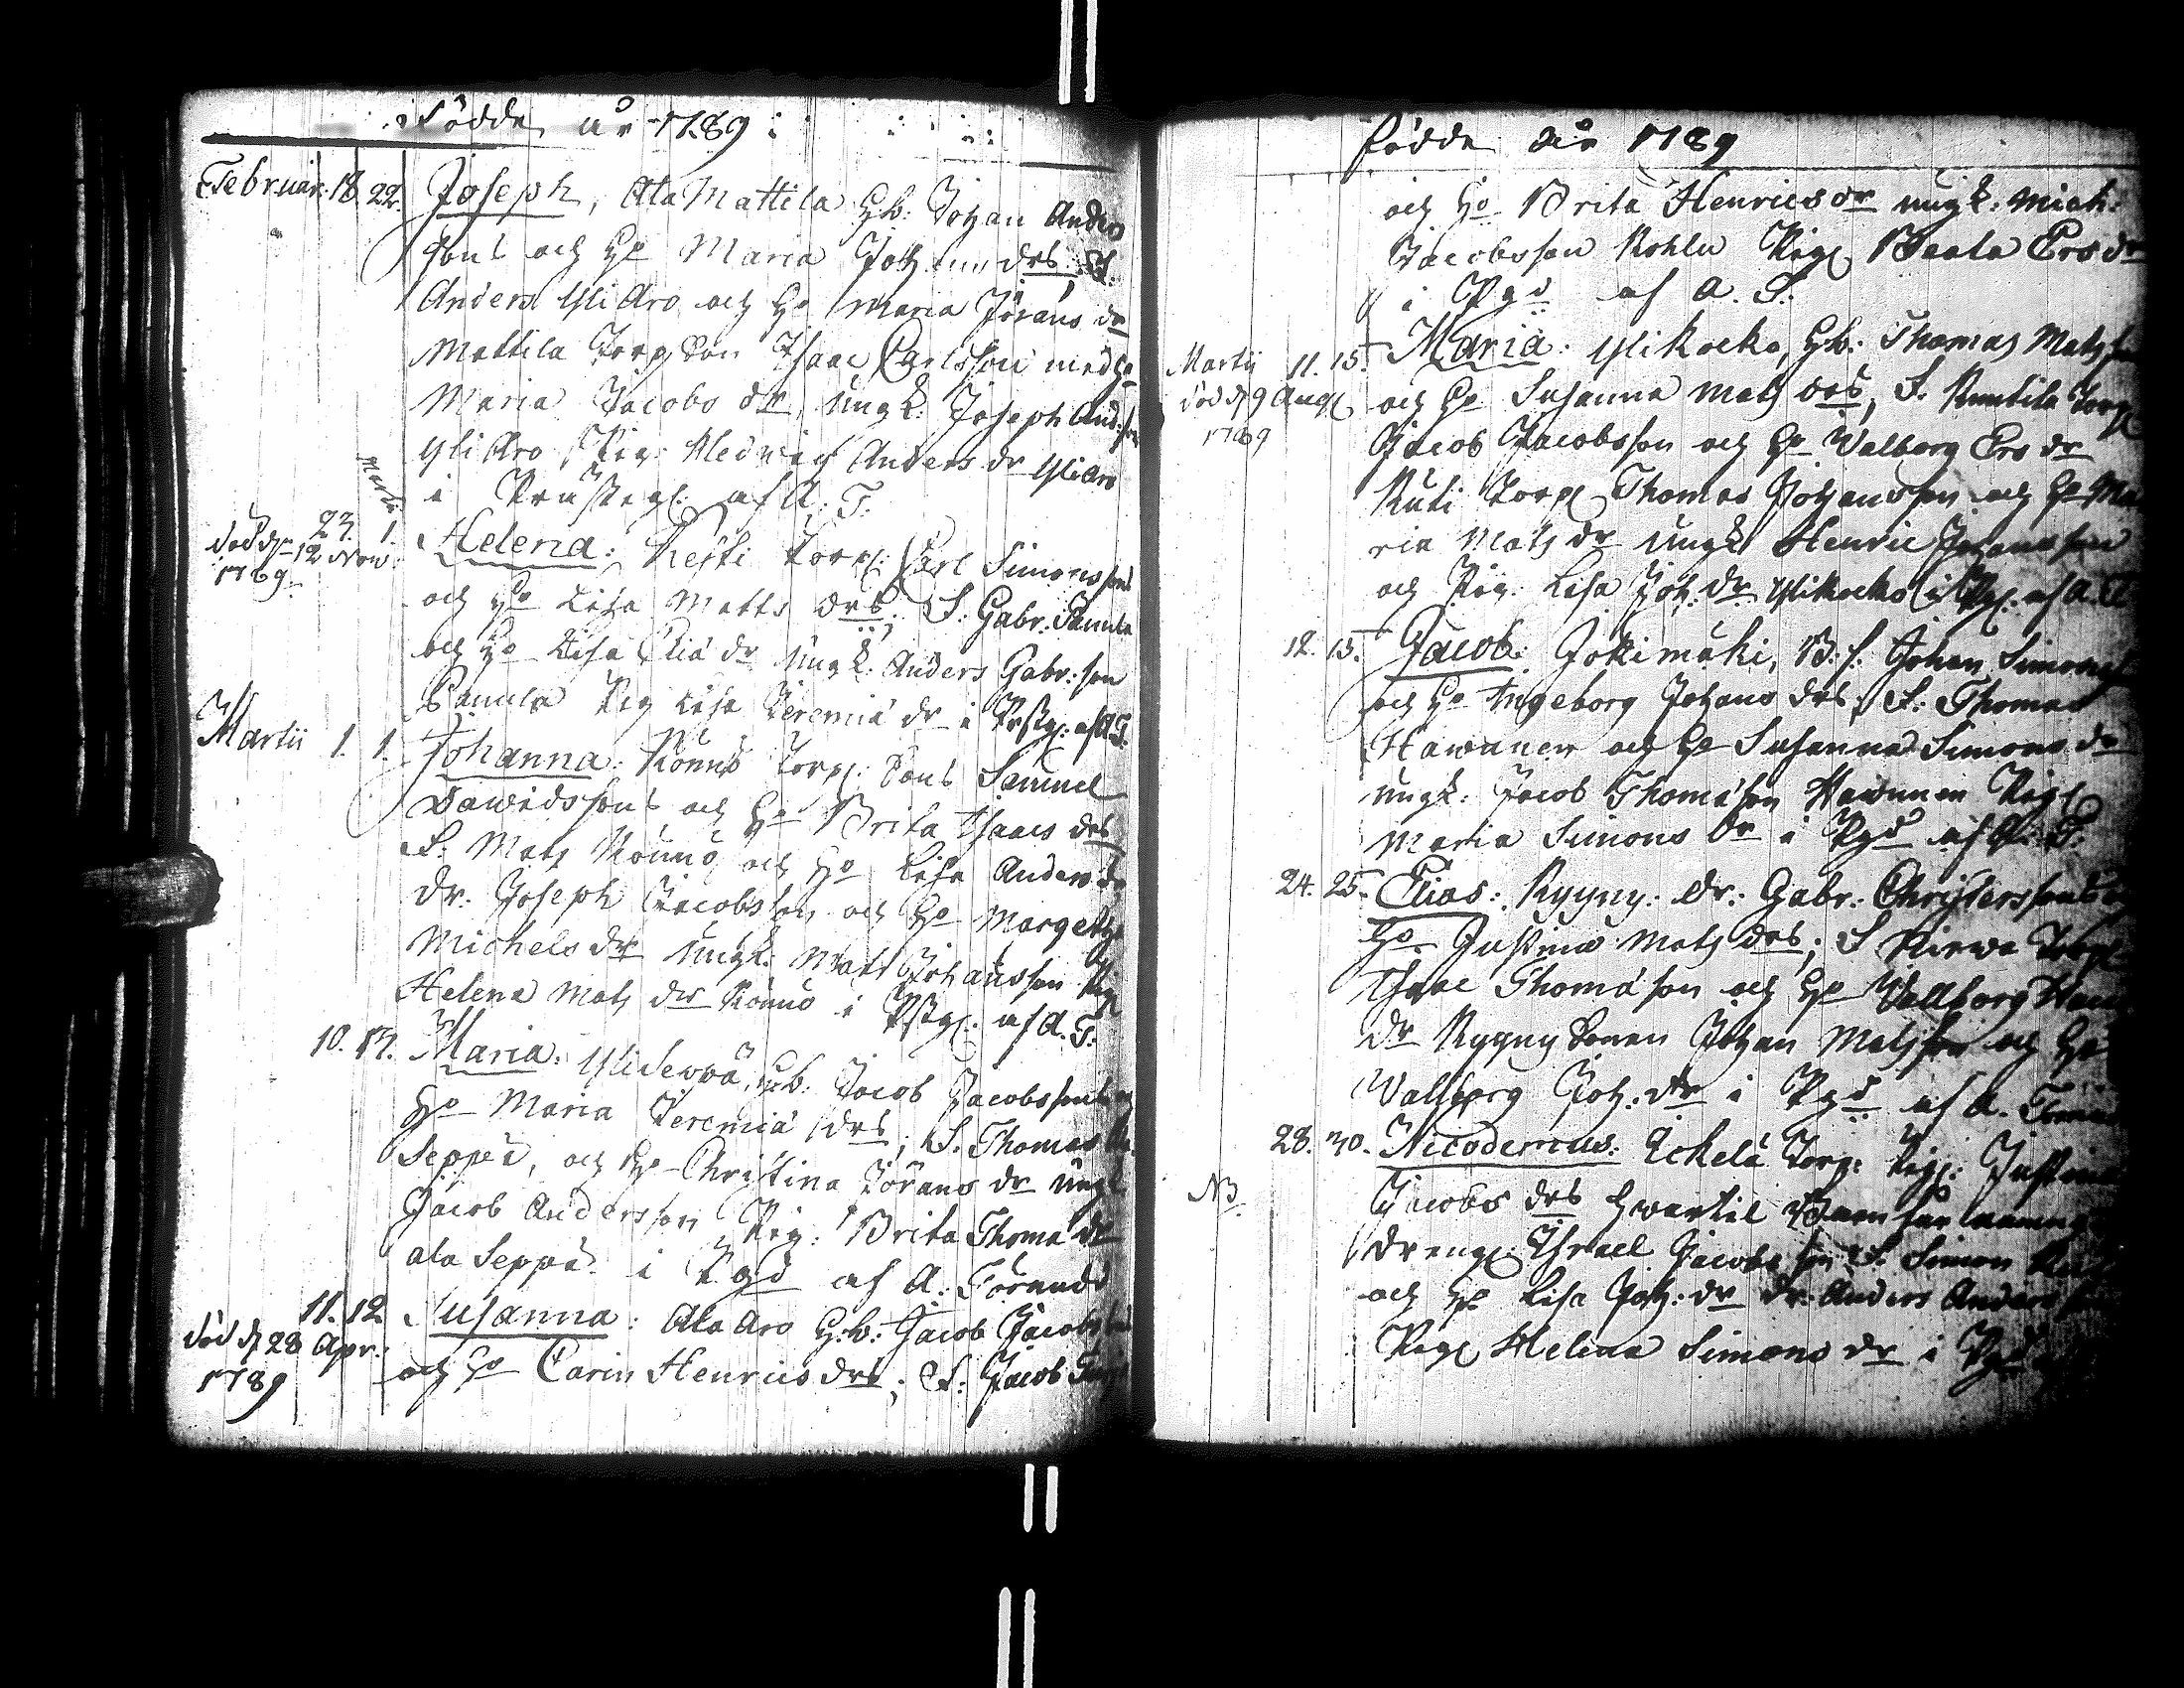 Födde år 1789
Februar. 18. 22. Joseph, Ala Mattila Hb: Johan Anders
sons och Ho Maria Joh: drs; S:
Anders Yli Aro och Ho Maria Jörans dr
Mattila Torp. Son Isaac Carlsson med Ho
Maria Jacobs dr, ungk: Joseph And:son
Yli Aro Pig: Hedwig Anders dr Yli Aro
i af A: F:
Martii
23. 1. Helena: Torp: Carl Simonssons
död d. 12 Nov:
1789
och Ho Lisa Matts drs; S: Gabr: Pamila
och Ho Lisa Eliä dr ungk: Anders Gabr: son
Pamila Pig Lisa Jeremiä dr i af A F:
Martii 1. 1. Johanna: Könnö Torp: Sons Samuel
Dawidssons och Ho Brita Isaacs drs
S: Mats Könnö och Ho Lisa Anders dr
Dr: Joseph Jacobsson och Ho Margetha
Michels dr ungk: Matts Johansson Pig
Helena Mats dr Könnö i af A. F:
10. 17. Maria: Yliseppä, Hb: Jacob Jacobssons och
Ho Maria Jeremiä drs; S: Thomas
Seppä, och Ho Christina Jörans dr ungk
Jacob Andersson Pig: Brita Thomä dr
ala Seppä i Pgd af A: Forundd
11. 12. Susanna: Ala Aro Hb: Jacob Jacobssons
död d. 28 Apr:
1789
och Ho Carin Henrics drs; S: Jacob
Födde år 1789
och Ho Brita Henrics dr ungk: Mich:
Jacobsson Rohlu Pig Beata Ers dr
i Pgd af A. F:
Martii 11. 15. Maria: Yli Kocko, Hb: Thomas Mats son
död d. 9 Aug
1789
och Ho Susanna Mats drs, S: Torp
Jacob Jacobsson och Ho Walborg Ers dr
Ruti Torp Thomas Johansson och Ho Ma
ria Mats dr ungk Henric Johansson
och Pig: Lisa Joh: dr Ylikocko i Pg: af A. F
12. 15. Jacob: Jokimäki, B:s: Johan Simons
och Ho Ingeborg Johans drs; S: Thomas
Hawunen och Ho Susanna Simons dr
ungk: Jacob Thomäson Hawunen Pig
Maria Simons dr i Pgd af A: F:
24. 25. Elias: Ryyny: Dr: Gabr: Christerssons
Ho Justina Mats drs; S Torp
Isaac Thomä son och Ho Wallborg
dr Ryyny Sonen Johan Mats son och Ho
Walborg Joh: dr i Pgd af A.
28. 30. Nicodemus: Eckelä Torp: Pig: Justina
NB
Jacobs drs hwartil Barnfar
Dreng: Israel Jacobs son S: Simon
och Ho Lisa Joh: dr Dr: Anders Anders
Pig Helena Simons dr i Pgd